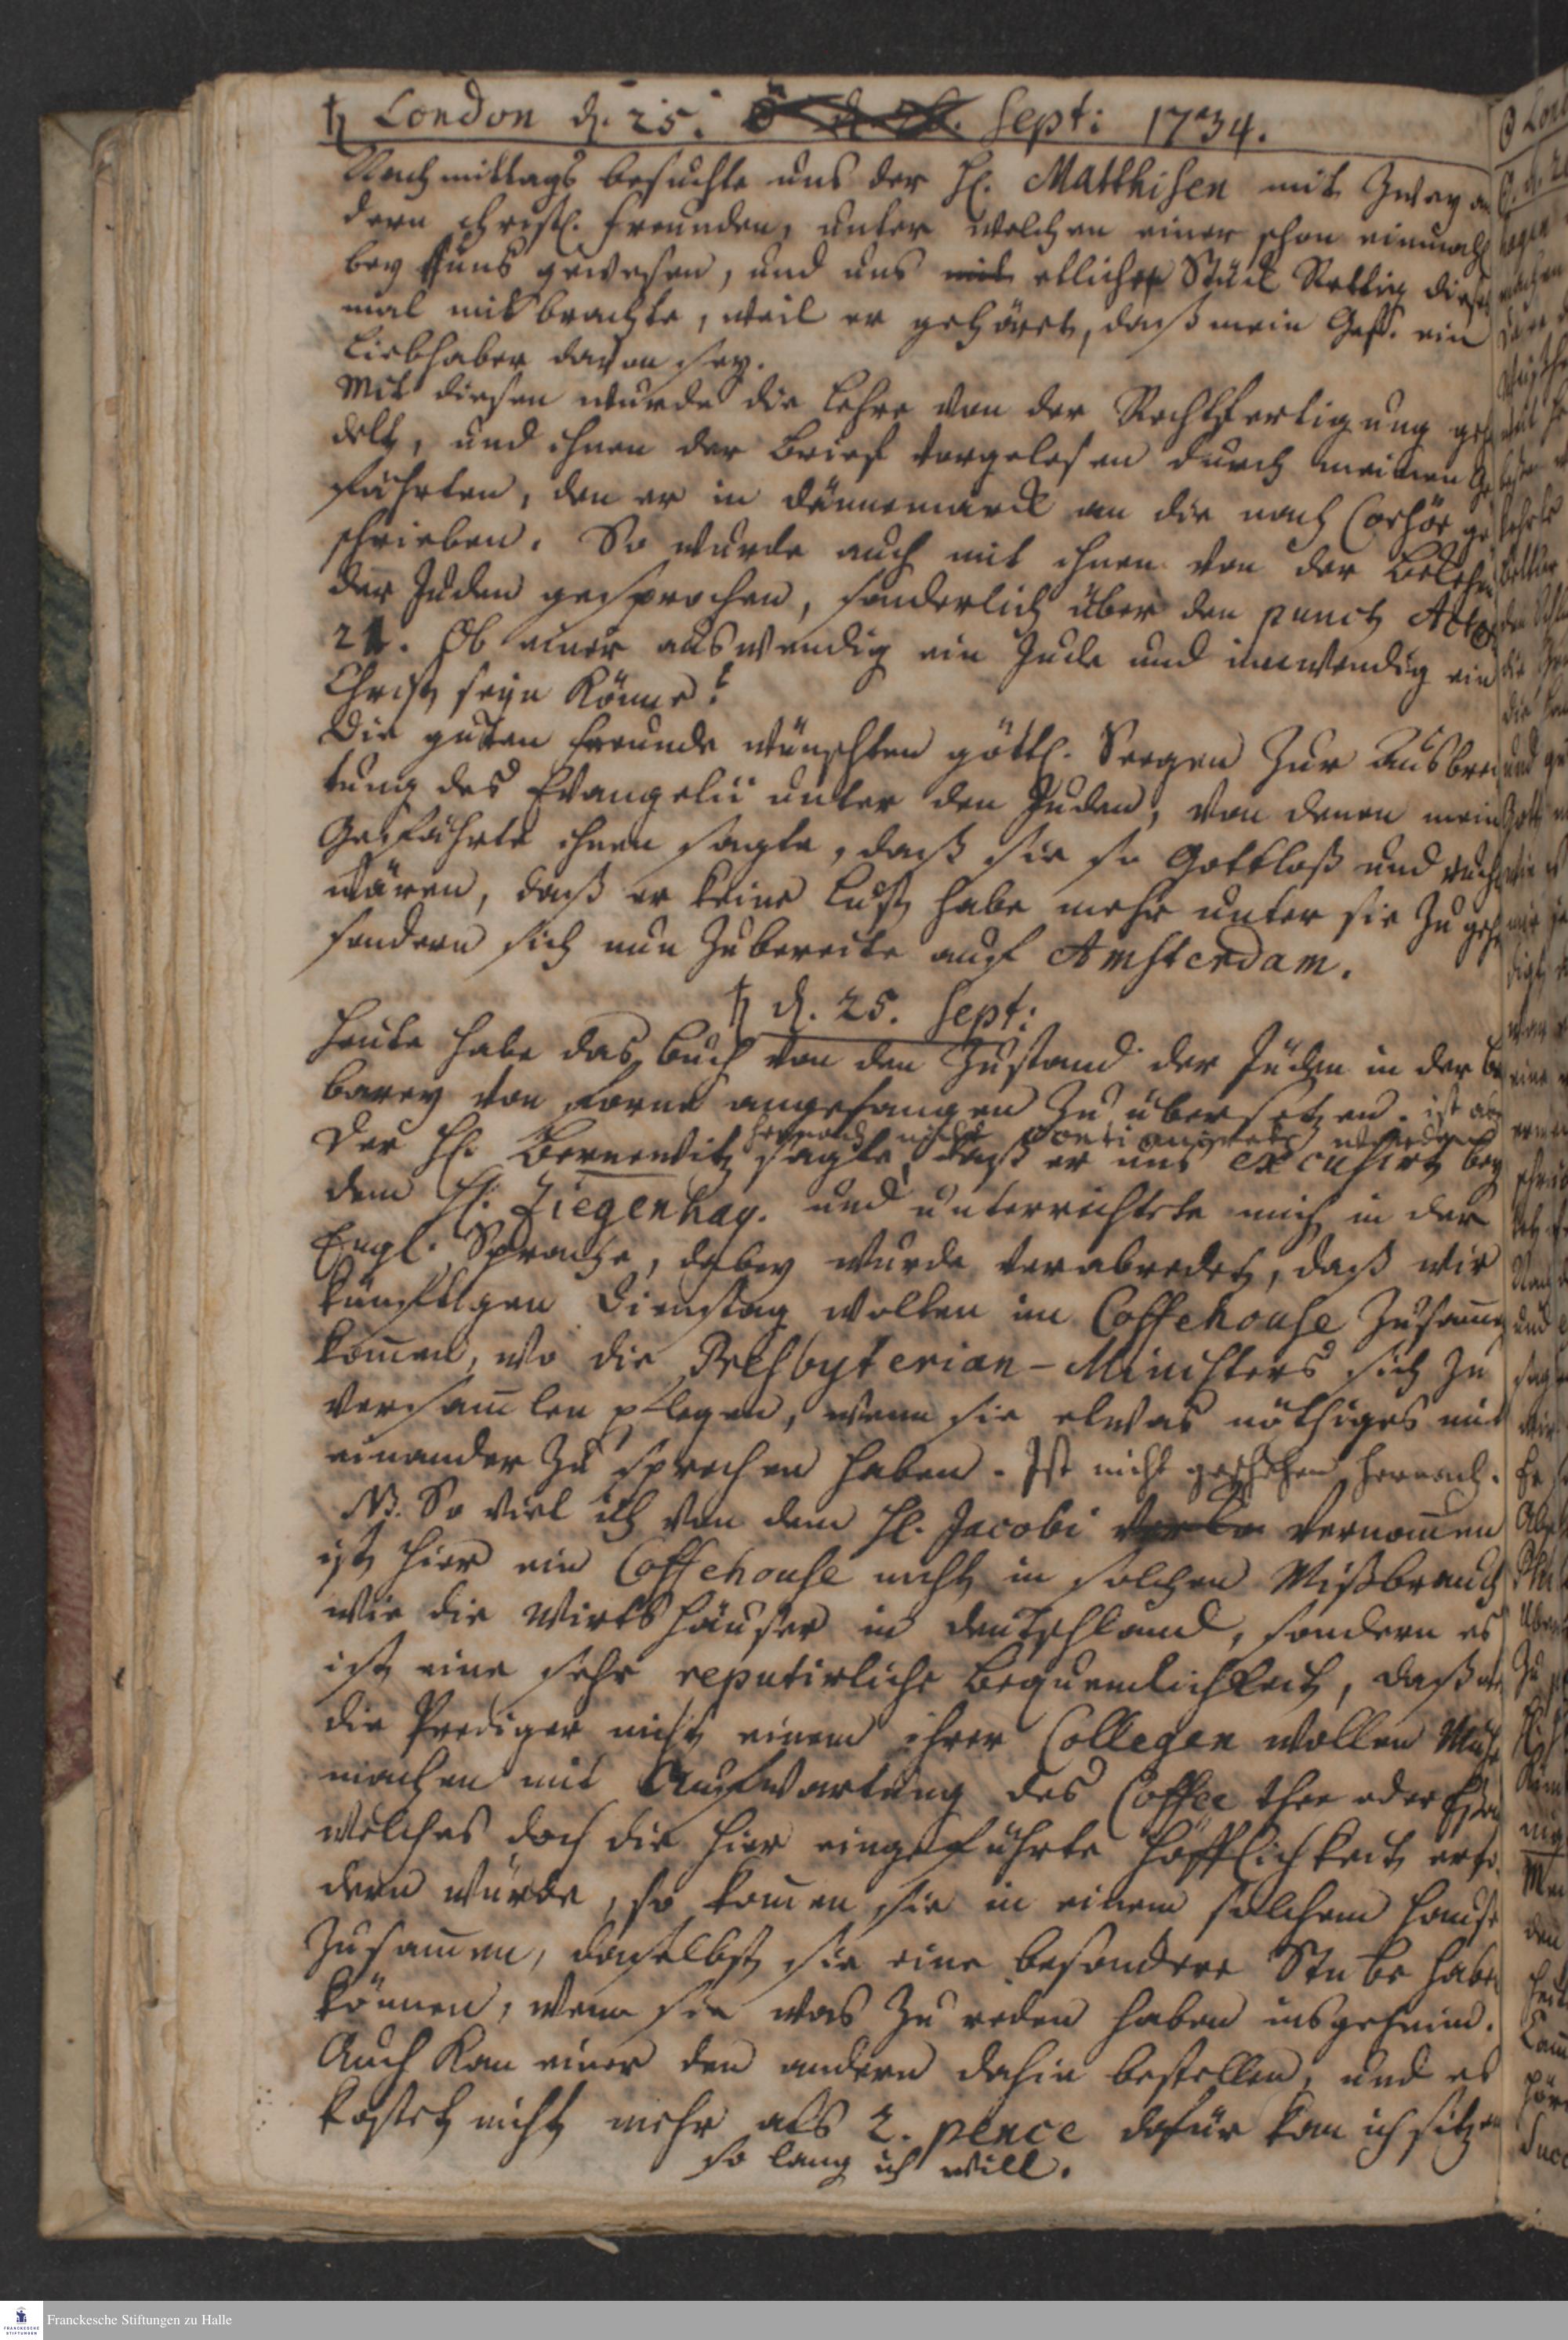 ♄ London d. 25. Sept: 1734.
Nachmittags besuchte uns der H. Matthisen mit zwey an
dern christl. Freunden, unter welchen einer schon einmahl
bey uns gewesen, und uns mit etliche Stück Rettig dieses
mal mit brachte, weil er gehöret, daß mein Gef. ein
Liebhaber davon sey.
Mit diesen wurde die Lehre von der Rechtfertigung geh
delt, und ihnen der Brief vorgelesen durch meinen Ge
fährten, den er in Dännemarck an die nach Corsör ge
schrieben. So wurde auch mit ihnen von der Bekehr
der Juden gesprochen, sonderlich über den punct Acto
21. Ob einer auswendig ein Jude und inwendig ein
Christ seyn könne?
Die guten Freunde wünschten göttl. Seegen zur Ausbrei
tung des Evangelii unter den Juden, von denen mein
Gefährte ihnen sagte, daß sie so Gottloß und ruch
wären, daß er keine Lust habe mehr unter sie zu geh
sondern sich nun zubereite auf Amsterdam.
♄ d. 25. Sept:
Heute habe das Buch von den Zustand der Juden in der Bar
barey von forne angefangen zu übersetzen. ist aber
hernach nicht continuiret worden
Der H. Bernewitz sagte, daß er uns excusirt bey
dem H. Ziegenhag. und unterrichtete mich in der
Engl. Sprache, dabey wurde verabredet, daß wir
künfftigen Dienstag wolten im Coffehouse zusamen
komen, wo die Presbyterian-Ministers sich zu
versamlen pflegen, wenn sie etwas nöthiges mit
einander zu sprechen haben. Ist nicht geschehen hernach.
NB. So viel ich von dem H. Jacobi vernomen
ist hier ein Coffehouse nicht in solchen Mißbrauch
wie die Wirtshäuser in Deutschland, sondern es
ist eine sehr reputirliche Bequemlichkeit, daß
die Prediger nicht einem ihrer Collegen wollen Mühe
machen mit Aufwartung des Coffee thee oder Essen
welches doch die hier eingeführte Höfflichkeit erfo
dern würde, so komen sie in einem solchem Hause
zusamen, daselbst sie eine besondere Stube haben
können, wenn sie was zu reden haben insgeheim.
Auch kan einer den andern dahin bestellen, und es
kostet nicht mehr als 2. pence dafür kan ich sitzen
so lang ich will.
Franckesche Stiftungen zu Halle